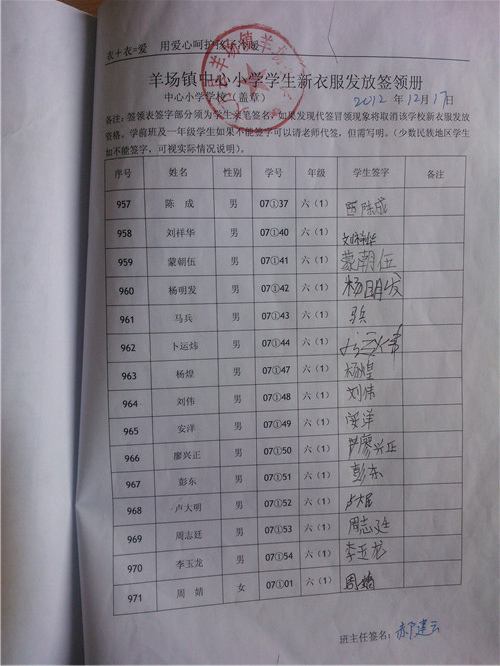 衣+衣=爱 用爱心呵护孩子冷暖
羊场镇中心小学学生新衣服发放签领册
中心小学学校（盖章） 2012 年 12月 17日
备注：签领表签字部分须为学生亲笔签名，如果发现代签冒领现象将取消该学校新衣服发放
资格。学前班及一年级学生如果不能签字可以请老师代签，但需写明。（少数民族地区学生
如不能签字，可视实际情况说明）。
序号 姓名 性别 学号 年级 学生签字 备注
957 陈 成 男 07①37 六（1） 陈成
958 刘样华 男 07①40 六（1） 刘样华
959 蒙朝伍 男 07①41 六（1） 蒙朝伍
960 杨明发 男 07①42 六（1） 杨明发
961 马兵 男 07①43 六（1） 兵
962 卜运炜 男 07①44 六（1）
963 杨煌 男 07①47 六（1） 杨煌
964 刘伟 男 07①48 六（1） 刘伟
965 安洋 男 07①49 六（1） 安洋
966 廖兴正 男 07①50 六（1） 廖兴正
967 彭东 男 07①51 六（1） 彭东
968 卢大明 男 07①52 六（1） 卢大明
969 周志廷 男 07①53 六（1） 周志廷
970 李玉龙 男 07①54 六（1） 李玉龙
971 周 婧 女 07①01 六（1） 周婧
班主任签名：郝建云